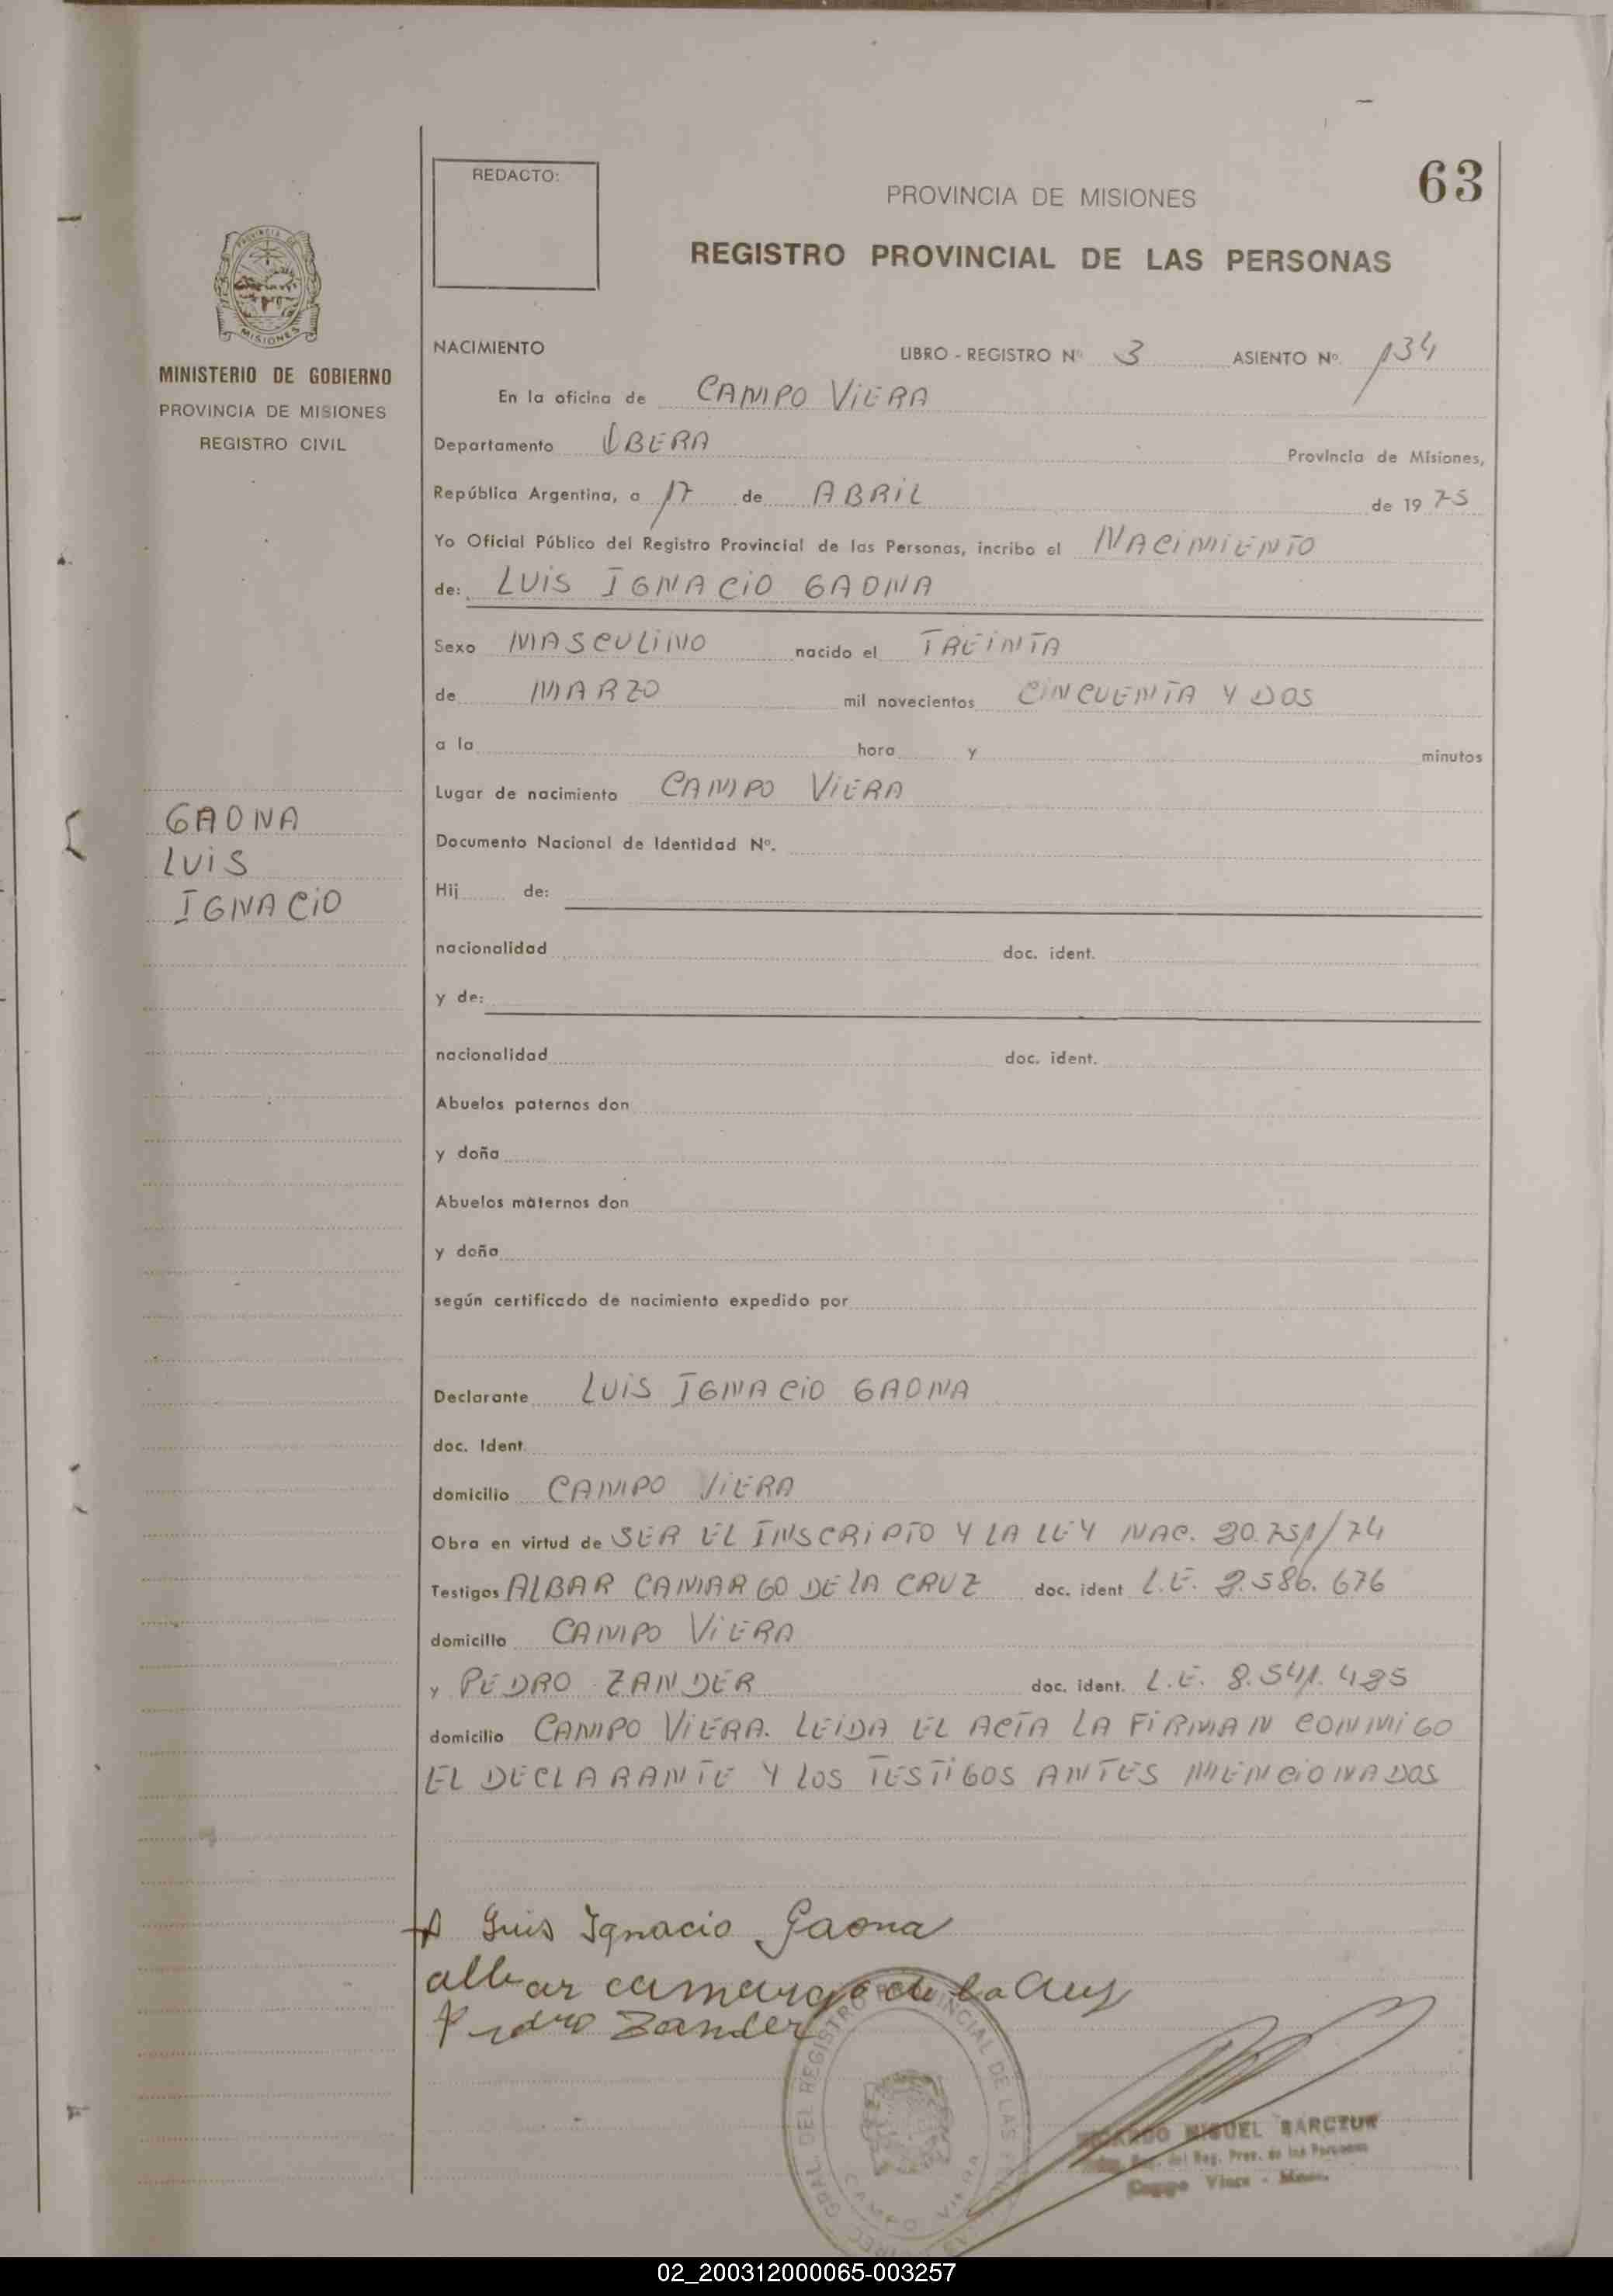 REDACTO:
63
PROVINCIA DE MISIONES
REGISTRO PROVINCIAL DE LAS PERSONAS
PROVINCIA DE
MISIONES
MINISTERIO DE GOBIERNO
PROVINCIA DE MISIONES
REGISTRO CIVIL
NACIMIENTO LIBRO - REGISTRO Nº 3 ASIENTO Nº. 134
En la oficina de CAMPO VIERA
Departamento OBERA Provincia de Misiones,
República Argentina, a 17 de ABRIL de 1975
Yo Oficial Público del Registro Provincial de las Personas, incribo el NACIMIENTO
de: LUIS IGNACIO GAONA
Sexo MASCULINO nacido el TREINTA
de MARZO mil novecientos CINCUENTA Y DOS
a la hora y minutos
Lugar de nacimiento CAMPO VIERA
GAONA
LUIS
IGNACIO
Documento Nacional de Identidad Nº.
Hij de:
nacionalidad doc. ident.
y de:
nacionalidad doc. ident.
Abuelos paternos don
y doña
Abuelos maternos don
y doña
según certificado de nacimiento expedido por
Declarante LUIS IGNACIO GAONA
doc. Ident.
domicilio CAMPO VIERA
Obra en virtud de SER EL INSCRIPTO Y LA LEY NAC. 20.751/74
Testigos ALBAR CAMARGO DE LA CRUZ doc. ident L.E. 8.586.676
domicilio CAMPO VIERA
y PEDRO ZANDER doc. ident. L.E. 8.541.485
domicilio CAMPO VIERA. LEIDA EL ACTA LA FIRMAN CONMIGO
EL DECLARANTE Y LOS TESTIGOS ANTES MENCIONADOS
Luis Ignacio Gaona
albar camargo de la Cruz
Pedro Zander
GRAL DEL REGISTRO PROVINCIAL DE LAS
CAMPO VIERA
RICARDO MIGUEL BARCZUK
del Reg. Prov. de las Personas
Campo Viera - Mnes.
02_200312000065-003257